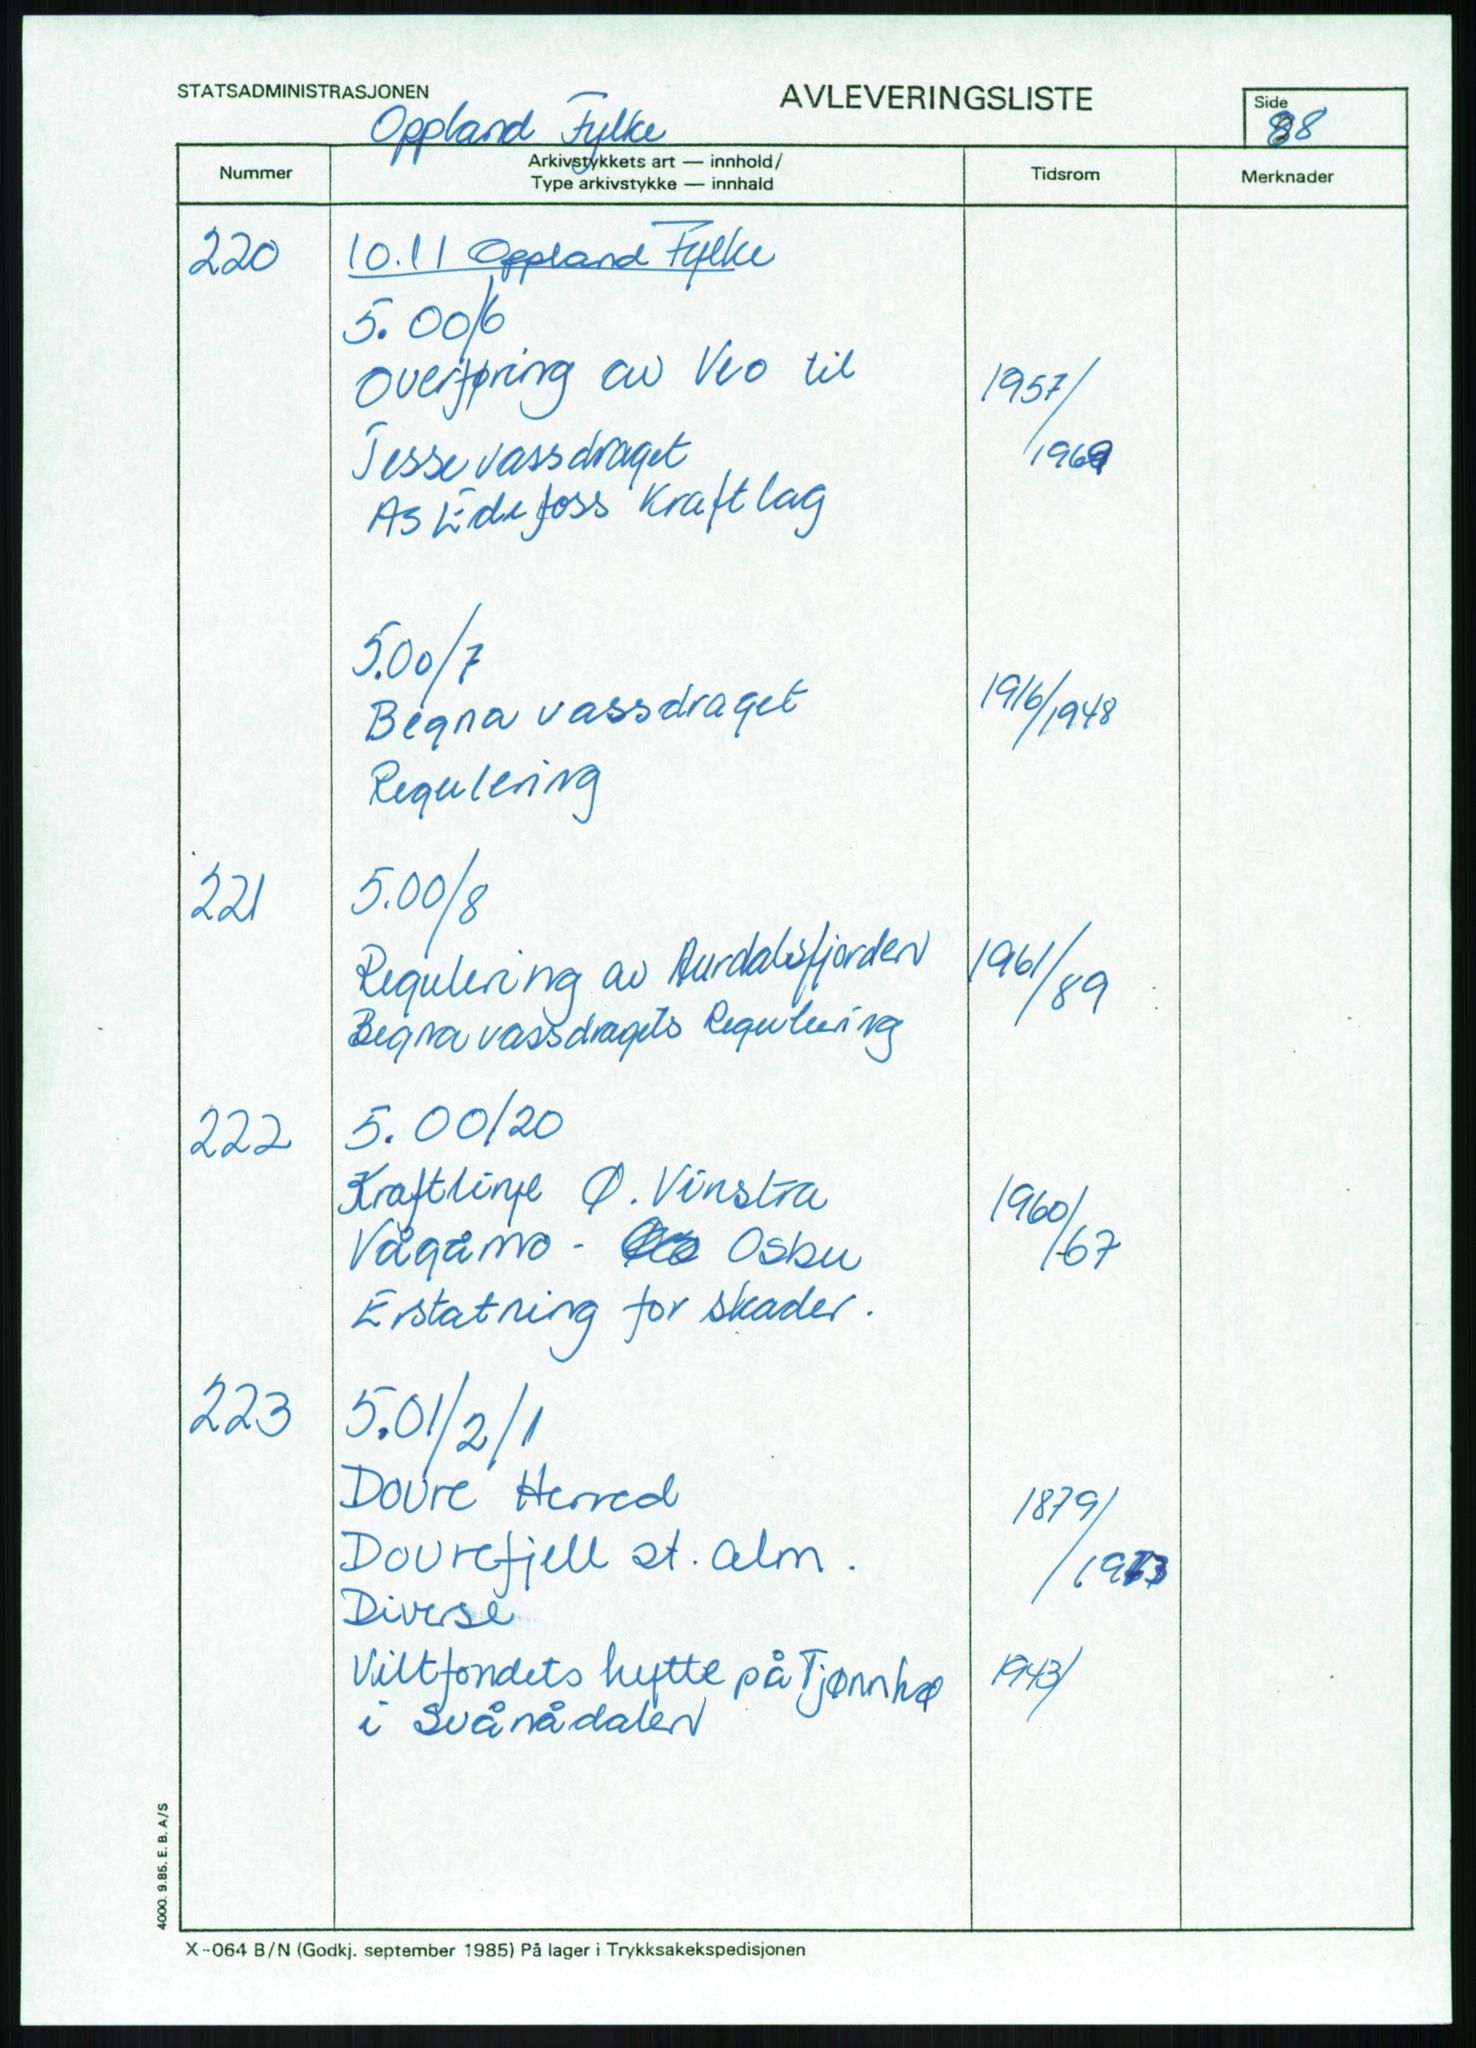 STATSADMINISTRASJONEN
AVLEVERINGSLISTE
Side
88
Oppland Fylke
Nummer
Arkivstykkets art — innhold/
Type arkivstykke — innhald
Tidsrom
Merknader
220 10.11 Oppland Fylke
5.00/6
Overføring av Veo til 1957/
Tessevassdraget 1969
AS Eidefoss Kraftlag
5.00/7
Begna vassdraget 1916/1948
Regulering
221 5.00/8
Regulering av Aurdalsfjorden 1961/89
Begnavassdragets Regulering
222 5.00/20
Kraftlinje Ø. Vinstra 1960/
Vågåmo - Osbu /67
Erstatning for skader.
223 5.01/2/1
Dovre Herred 1879/
Dovrefjell st. alm. /1973
Diverse
Viltfondets hytte på Tjønnhø 1943/
i Svånådalen
4000. 9.85. E. B. A/S
X-064 B/N (Godkj. september 1985) På lager i Trykksakekspedisjonen